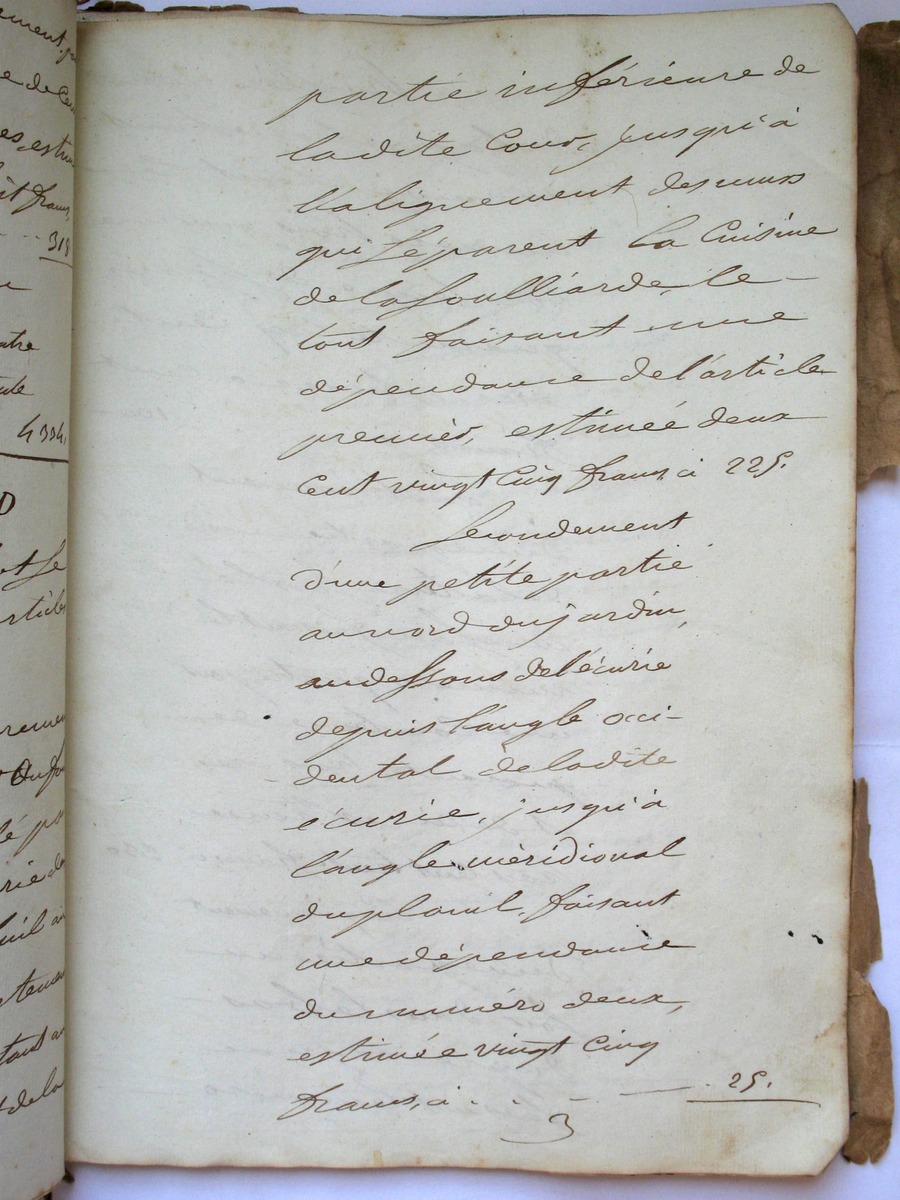 partie inférieure de
ladite Cour, jusqu'à
l'alignement des murs
qui séparent la Cuisine
de la Soulliarde, le
tout faisant une
dépendance de l'article
premier, estimée deux
Cent vingt Cinq francs à 225.
Secondement
d'une petite partie
au nord du jardin,
au dessous de l'écurie
depuis l'angle occi-
dental de ladite
écurie, jusqu'à
l'angle méridional
du plouil, faisant
une dépendance
du numéro deux,
estimée vingt Cinq
francs, à . . . 25.
3
ement
e de
es, estim
francs,
318
atre
4304.
D
et le
article
rie de
tant a
de la